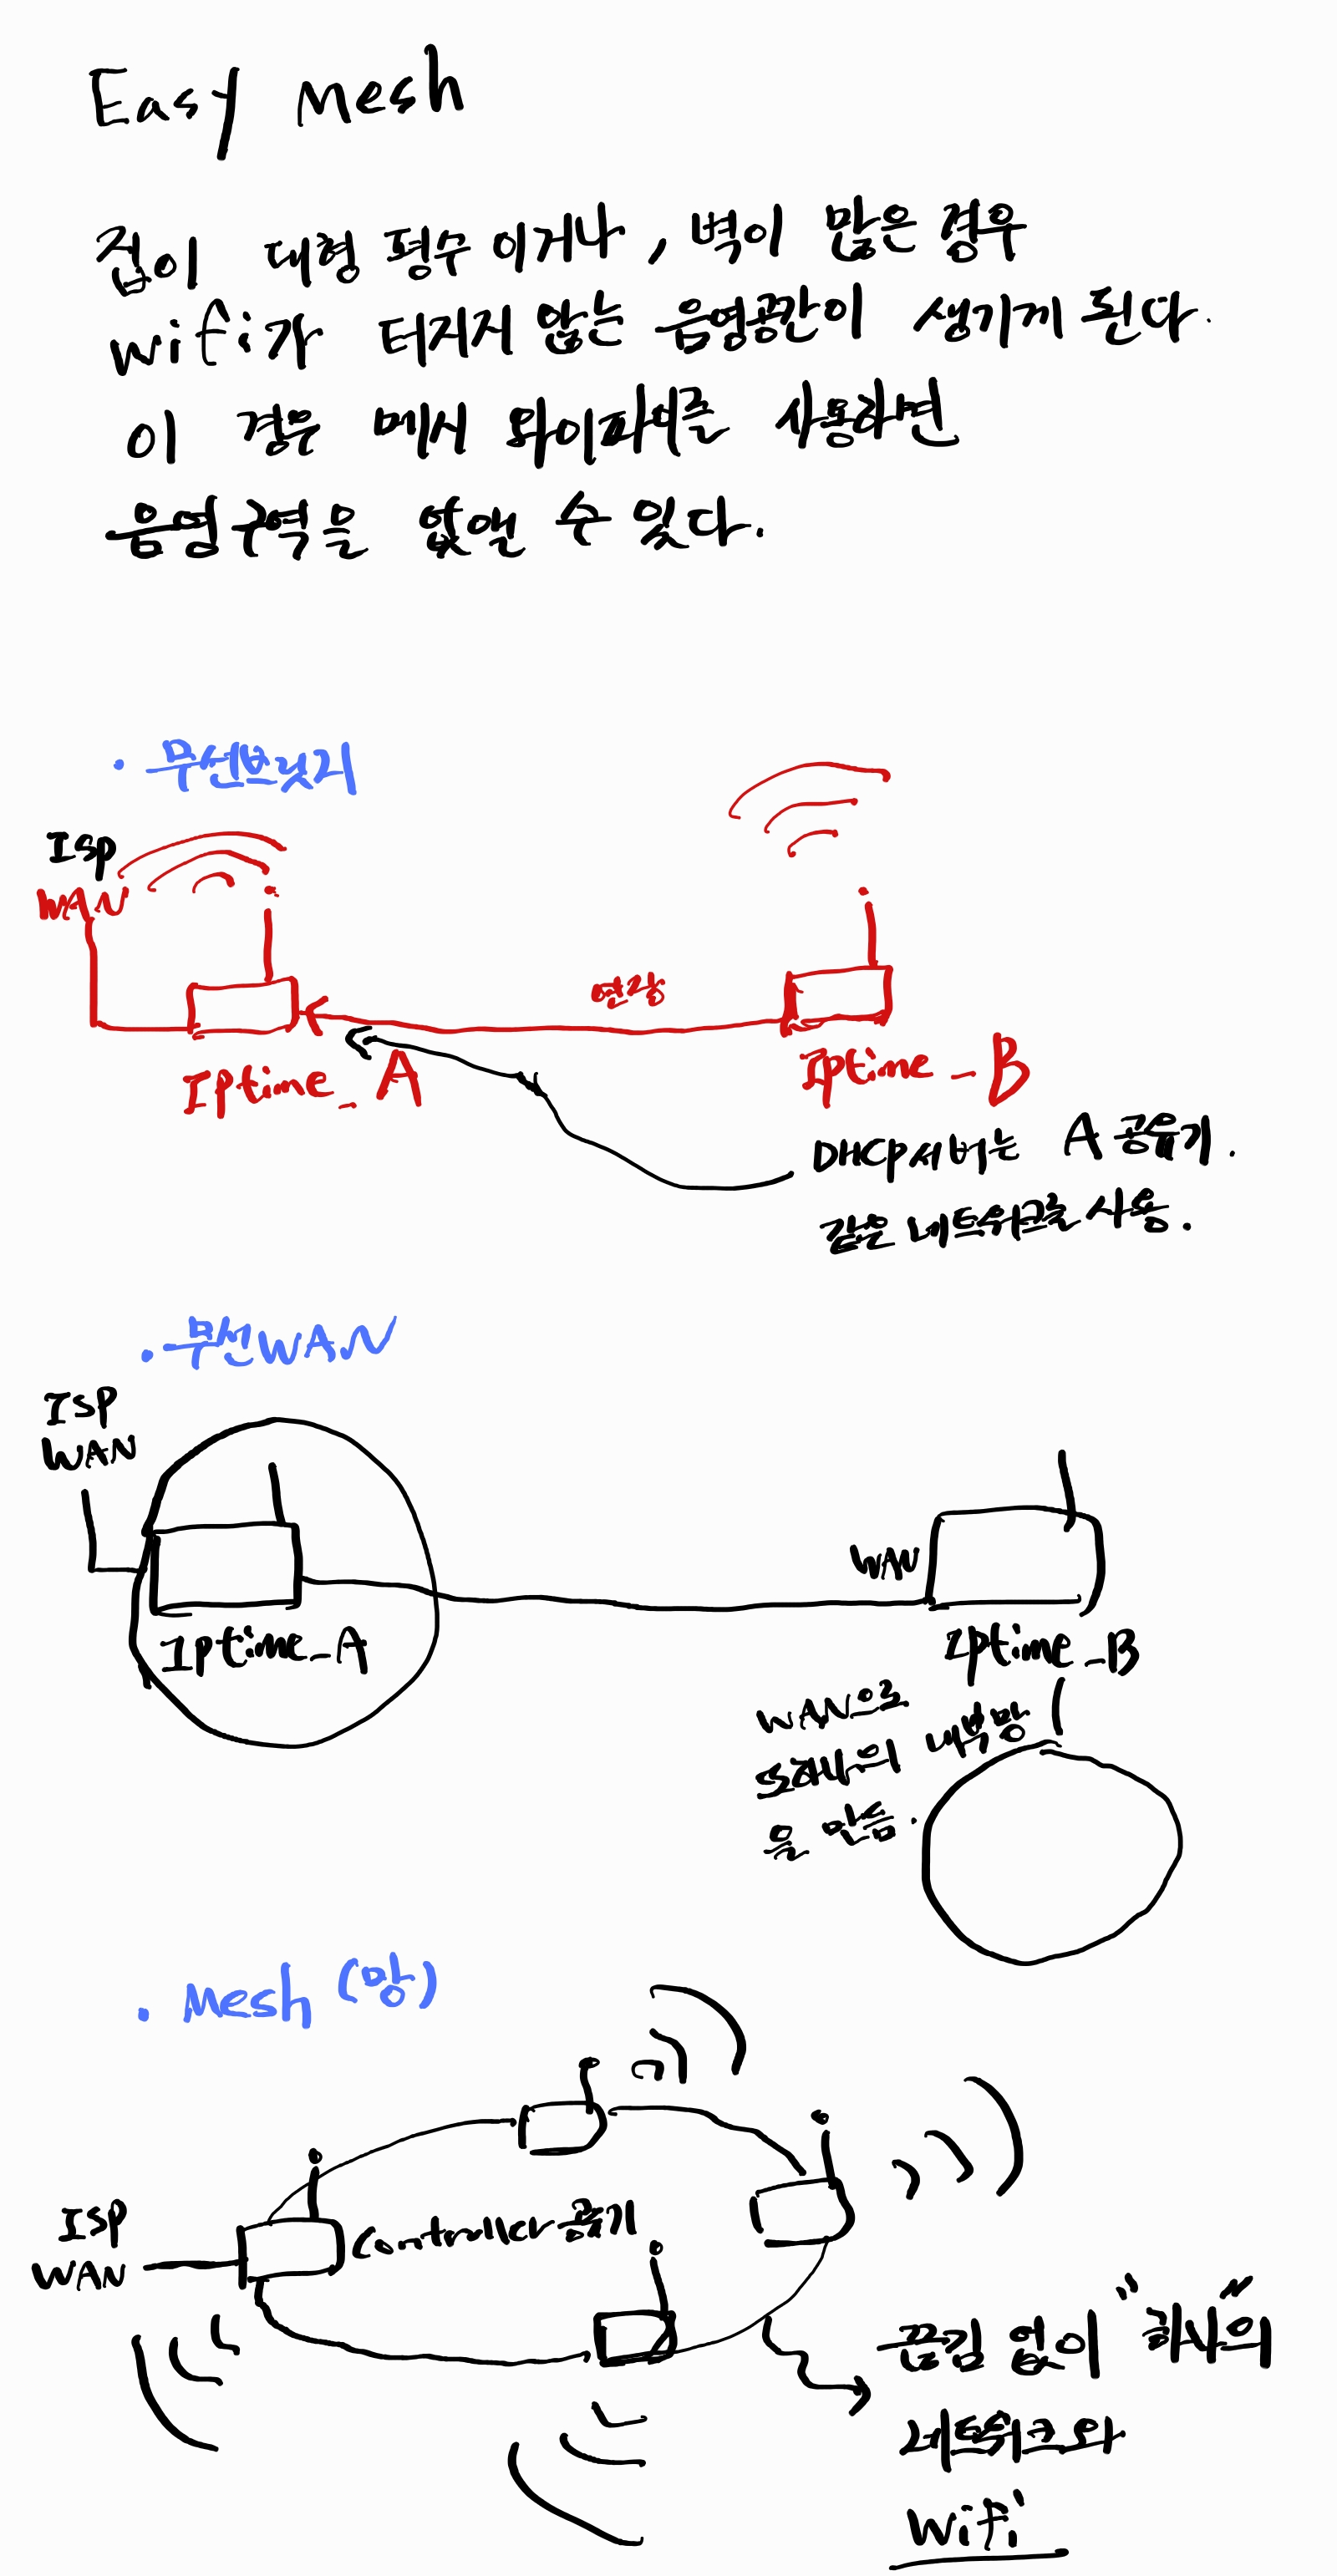 Easy Mesh
집이 대형 평수 이거나, 벽이 많은 경우
wifi가 터지지 않는 음영공간이 생기게 된다.
이 경우 메시 와이파이를 사용하면
음영구역을 없앨 수 있다.
· 무선브릿지
ISP
WAN
연장
Iptime_A
Iptime_B
DHCP서버는 A 공유기.
같은 네트워크를 사용.
· 무선WAN
ISP
WAN
WAN
Iptime_A
Iptime_B
WAN으로
또하나의 내부망
을 만듬.
· Mesh (망)
ISP
WAN
Controller 공유기
끊김 없이 "하나"의
네트워크와
Wifi